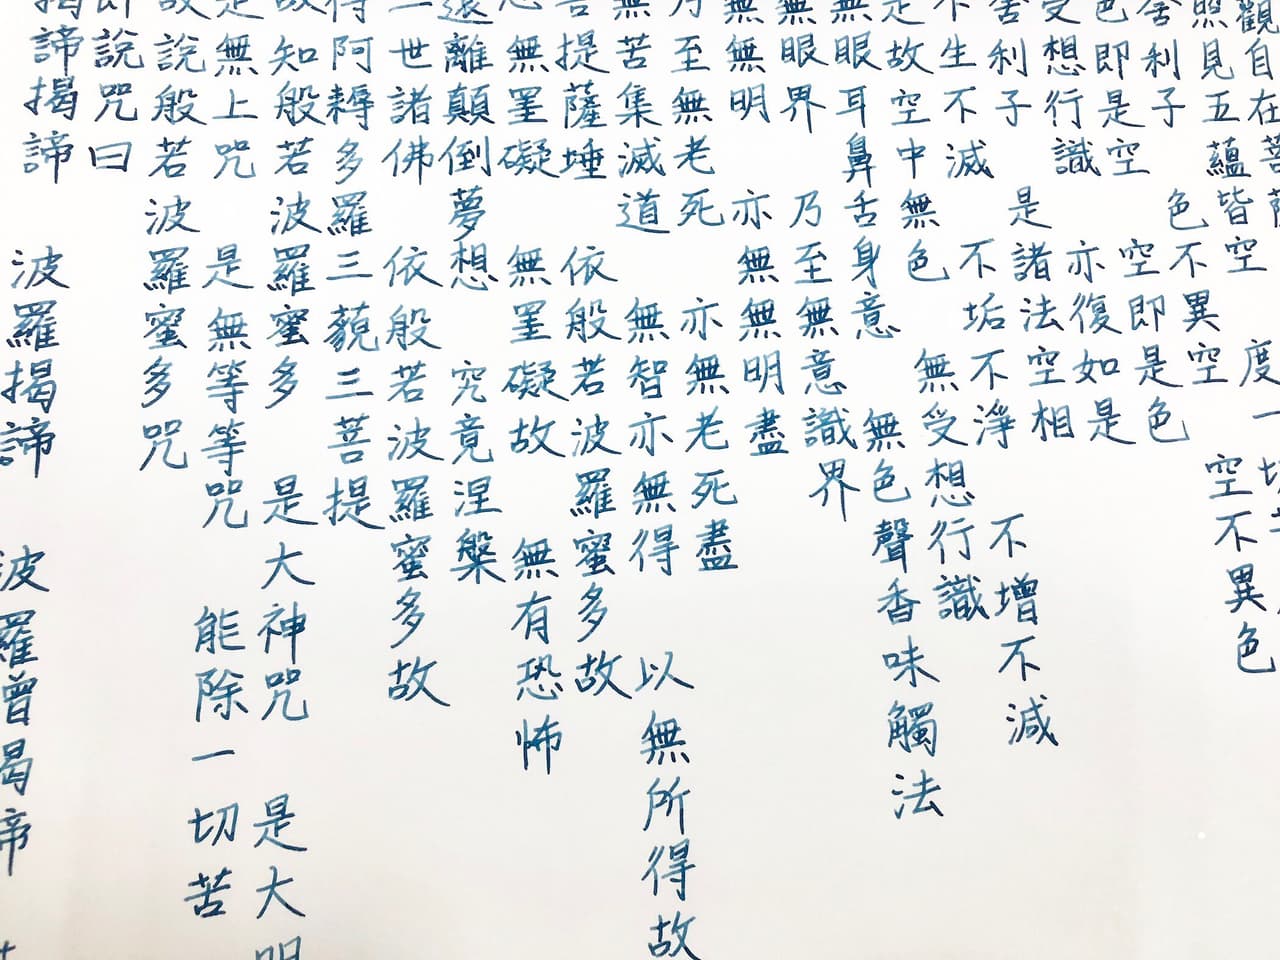 觀自在菩薩
照見五蘊皆空 度一切
舍利子 色不異空 空不異色
色即是空 空即是色
受想行識 亦復如是
舍利子 是諸法空相
不生不滅 不垢不淨 不增不減
是故空中無色 無受想行識
無眼耳鼻舌身意 無色聲香味觸法
無眼界 乃至無意識界
無無明 亦無無明盡
乃至無老死 亦無老死盡
無苦集滅道 無智亦無得 以無所得故
菩提薩埵 依般若波羅蜜多故
心無罣礙 無罣礙故 無有恐怖
遠離顛倒夢想 究竟涅槃
三世諸佛 依般若波羅蜜多故
得阿耨多羅三藐三菩提
故知般若波羅蜜多 是大神咒 是大明
是無上咒 是無等等咒 能除一切苦
故說般若波羅蜜多咒
即說咒曰
揭諦揭諦 波羅揭諦 波羅僧揭諦